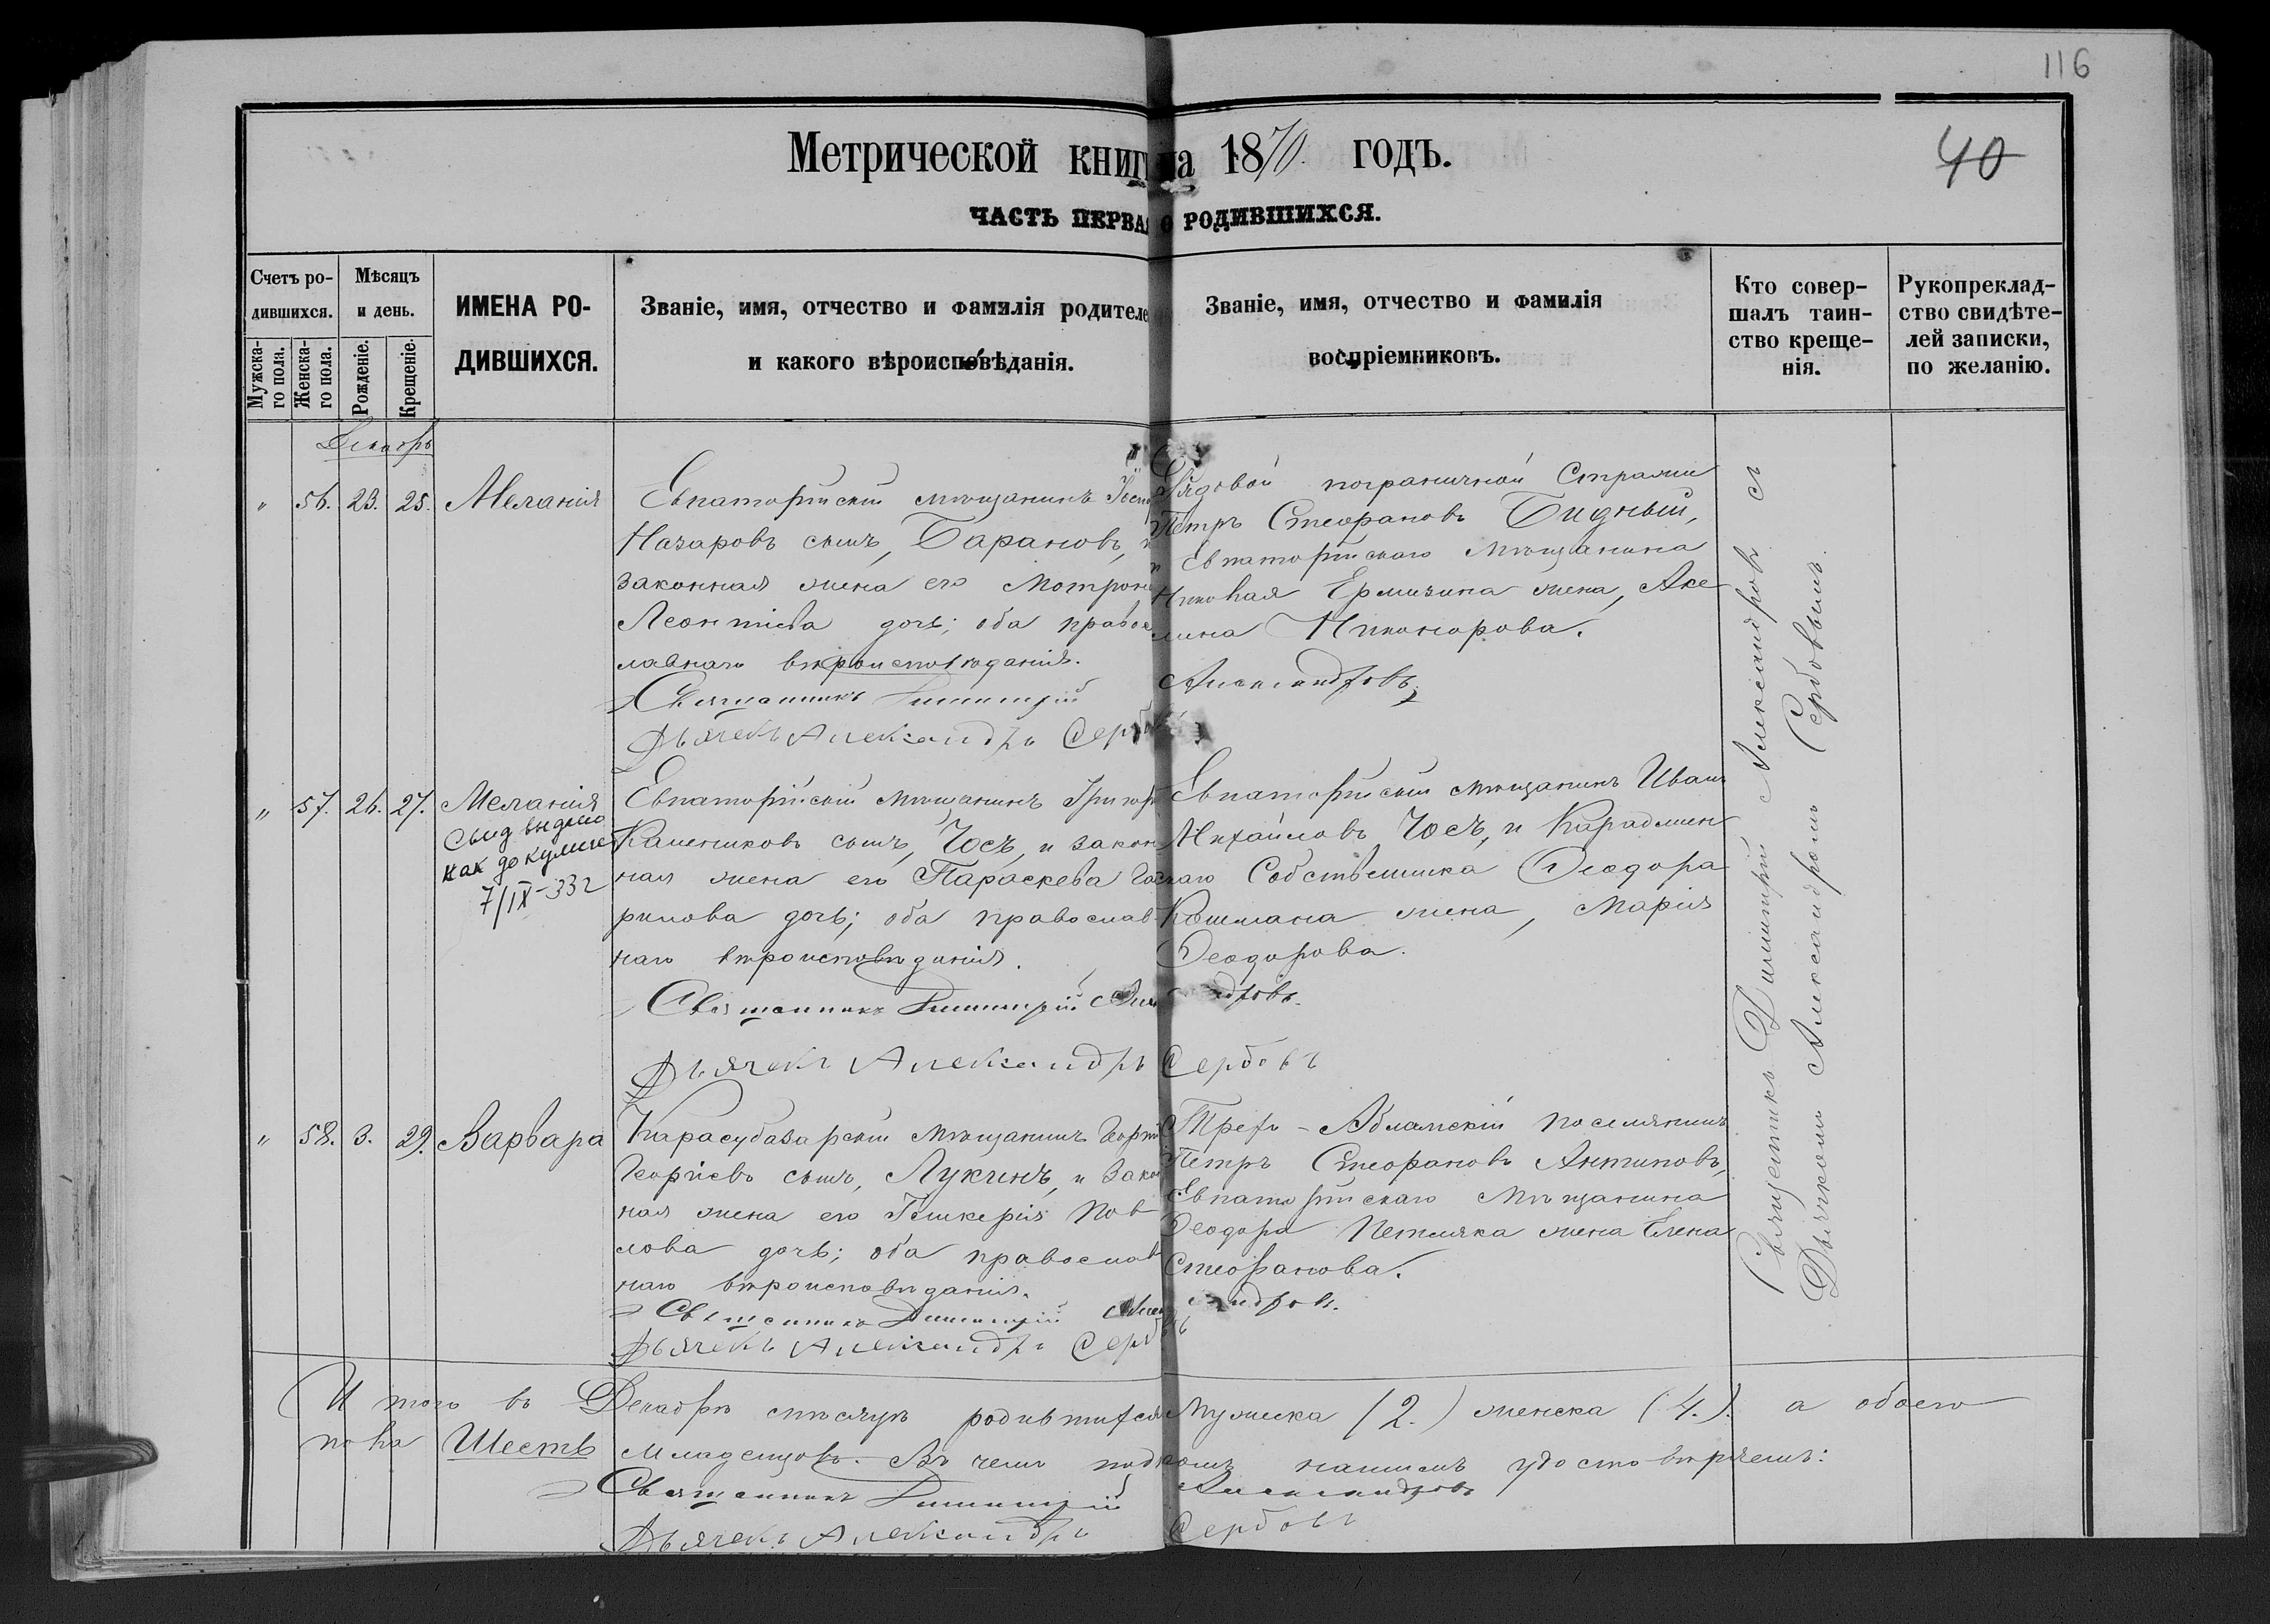 116
40
Метрической книги на 1870 годъ.
ЧАСТЬ ПЕРВАЯ О РОДИВШИХСЯ.
Счетъ родившихся.
Мужскаго пола.
Женскаго пола.
Мѣсяцъ и день.
Рожденіе.
Крещеніе.
ИМЕНА РО-
ДИВШИХСЯ.
Званіе, имя, отчество и фамилія родителе
и какого вѣроисповѣданія.
Званіе, имя, отчество и фамилія
воспріемниковъ.
Кто совер-
шалъ таин-
ство креще-
нія.
Рукоприклад-
ство свидѣте-
лей записки,
по желанію.
Декабрь
" 56. 23. 25. Меланія
Евпаторійскій мѣщанинъ
Назаровъ сынъ, Барановъ, и
законная жена его Мотрона
Леонтіева дочь; оба правос
лавнаго вѣроисповѣданія.
Священникъ Димитрій Александровъ
Дьячекъ Александръ Сербовъ
Рядовой пограничной Стражи
Петръ Стефановъ Бидный,
и Евпаторійскаго мѣщанина
Николая жена, Аке-
лина Никонорова.
" 57. 26. 27. Меланія
выдано
как документ
7/IX-33г
Евпаторійскій мѣщанинъ Григор
сынъ, Чосъ, и закон
ная жена его Параскева
рилова дочь; оба православ
наго вѣроисповѣданія.
Священникъ Димитрій Александровъ.
Дьячекъ Александръ Сербовъ
Евпаторійскій мѣщанинъ Иванъ
Михайловъ Чосъ, и
Собственника Ѳеодора
жена, Марія
Ѳеодорова.
" 58. 3. 29. Варвара
Карасубазарскій мѣщанинъ Георгій
Георгіевъ сынъ, Лукинъ, и закон
ная жена его Гликерія Пав
лова дочь; оба православ
наго вѣроисповѣданія.
Священникъ Димитрій Александровъ.
Дьячекъ Александръ Сербовъ
Трехъ-Абламскій поселянинъ
Петръ Стефановъ Антиповъ,
Евпаторійскаго мѣщанина
Ѳеодора жена Елена
Стефанова.
Священникъ Димитрій Александровъ съ
Дьячкомъ Александромъ Сербовымъ.
И того въ Декабрѣ мѣсяцѣ родившихся мужеска (2.) женска (4.). а обоего
пола Шесть младенцовъ. Въ чемъ подписомъ нашимъ удостовѣряемъ:
Священникъ Димитрій Александровъ
Дьячекъ Александръ Сербовъ